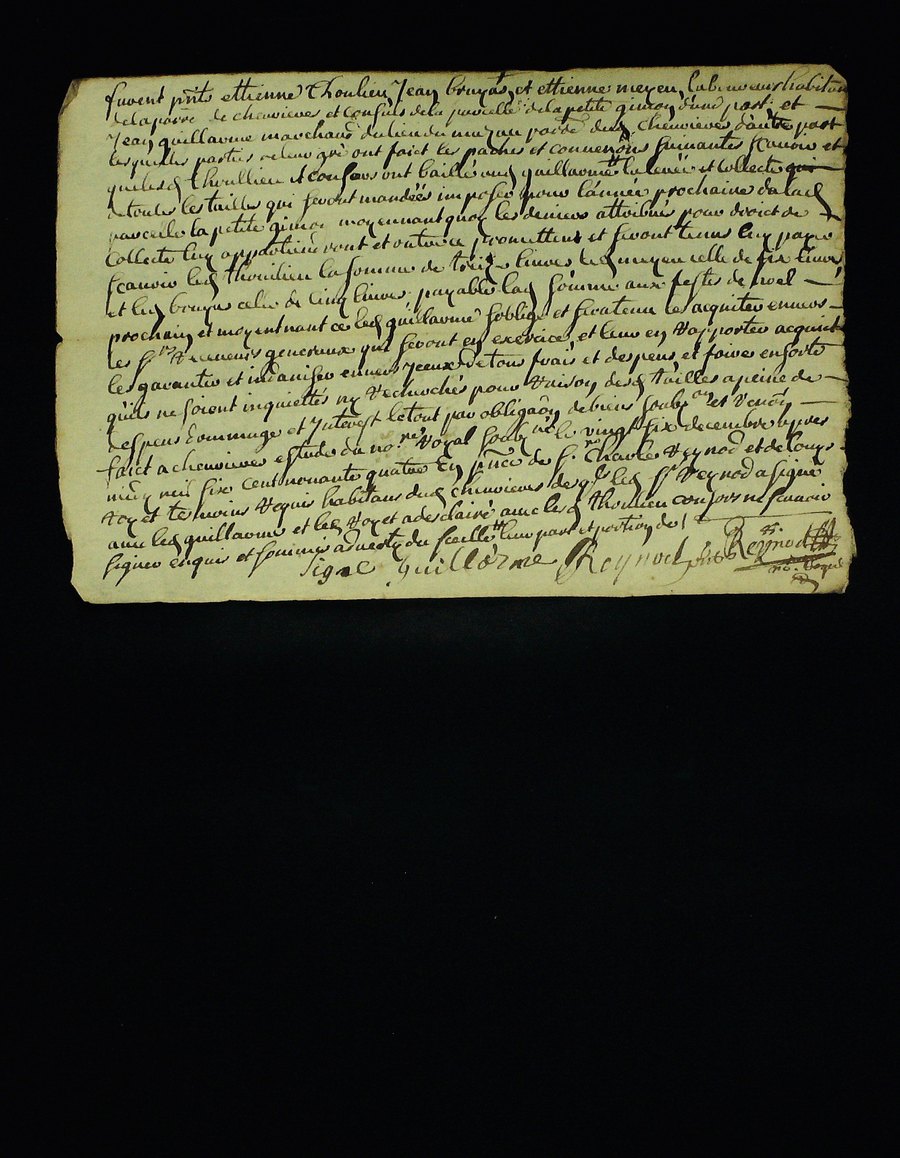 furent pnts ettienne Thoulieu Jean bruyas et ettienne meyen laboureurs habitans
de la parre de chevrieres et consuls de la parcelle de la petite gimon d'une part et
Jean guillaume marchand du lieu du mazan parre dud chevrieres d'autre part
lesquelles parties de leur gré ont faict les paches et convenôns suivantes scavoir et
que lesd Thoullieu et consors ont baillé aud guillaume la levée et collecte
de toutes les tailles qui seront mandées imposer pour l'année prochaine da lad
parcelle la petite gimon moyennant quoy les deniers attribués pour droict de
Collecte luy appartiendront et outre ce promettent et seront tenus luy payer
scavoir led Thoulieu la somme de treize livres led meyen celle de six livres
et led bruyas celle de cinq livres payable lad somme aux festes de noel
prochain et moyennant ce led guillaume s'oblige et sera tenu les acquiter envers
les srs Receveurs generaux qui seront en exercice et leur en Rapporter acquict
les garantir et indamiser envers Jceux de tous frais et despens et faire en sorte
qu'ils ne soient inquiettés ny Recherchés pour Raison desd tailles a peine de
despens dommage et Jnterest le tout par obligaôn de biens soubôns et Renôn
faict a chevrieres estude du nore Royal soubné le vingt six decembre apres
midy mil six cent nonante quatre En pnce de sr Charles Reynod et de Louys
Royet temoins Requis habitans dud chevrieres desqls led sr Reynod a signé
avec led guillaume et led Royet a desclairé avec lesd Thoulieu consors ne scavoir
signer enquis et sommis advertis du scellé leur part et portion de /
Signe Guillerme Reynod Reynod
nre Royal